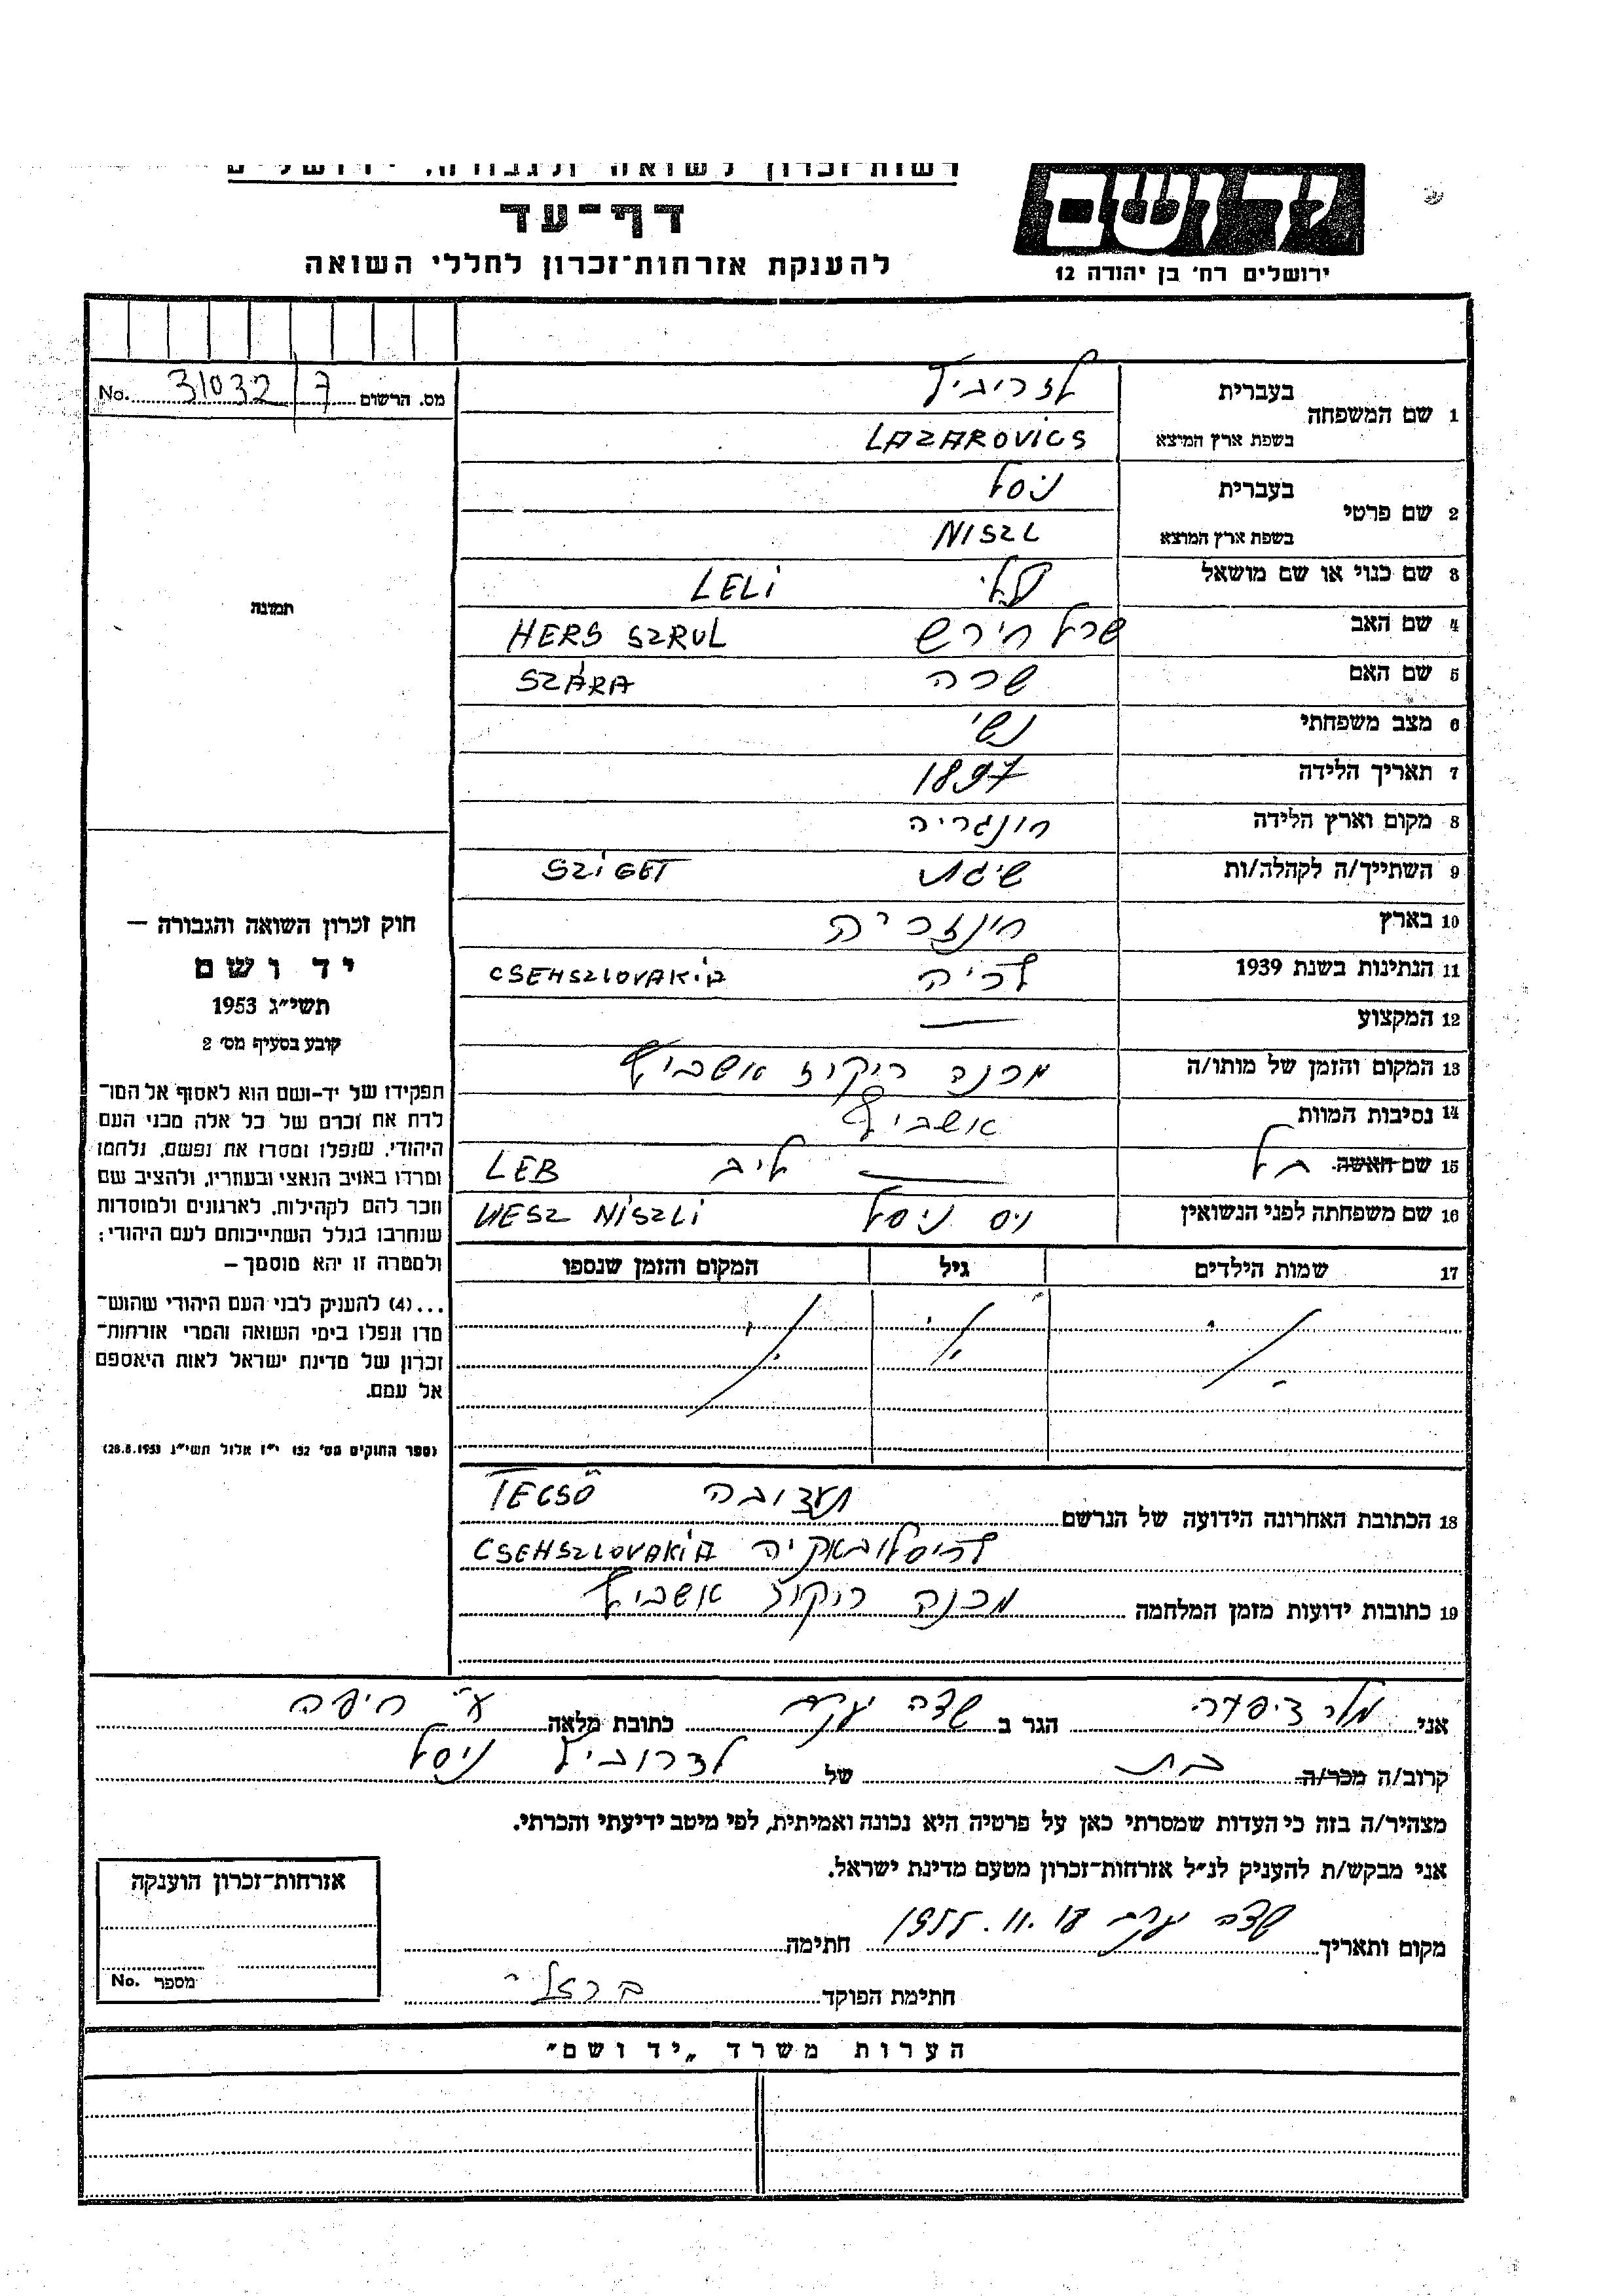 רשות־זכרון לשואה ולגבורה, ירושלים
יד ושם
דף־עד
להענקת אזרחות־זכרון לחללי השואה
ירושלים רח' בן יהודה 12
No. 31032/7 מס. הרשום
תמונה
חוק זכרון השואה והגבורה –
יד ושם
תשי״ג 1953
קובע בסעיף מס' 2
תפקידו של יד-ושם הוא לאסוף אל המו־
לדת את זכרם של כל אלה מבני העם
היהודי, שנפלו ומסרו את נפשם, נלחמו
ומרדו באויב הנאצי ובעוזריו, ולהציב שם
וזכר להם לקהילות, לארגונים ולמוסדות
שנחרבו בגלל השתייכותם לעם היהודי;
ולמטרה זו יהא מוסמך –
...(4) להעניק לבני העם היהודי שהוש־
מדו ונפלו בימי השואה והמרי אזרחות־
זכרון של מדינת ישראל לאות היאספם
אל עמם.
(ספר החוקים מס' 132 י״ז אלול תשי״ג 28.8.1953)
1 שם המשפחה בעברית לזריביץ
בשפת ארץ המוצא LAZAROVICS
2 שם פרטי בעברית ניסל
בשפת ארץ המוצא NISZL
3 שם כנוי או שם מושאל LELI
4 שם האב שרל הירש HERS SZRUL
5 שם האם שרה SZÁRA
6 מצב משפחתי נשוי
7 תאריך הלידה 1897
8 מקום וארץ הלידה הונגריה
9 השתייך/ה לקהלה/ות סיגט SZIGET
10 בארץ הונגריה
11 הנתינות בשנת 1939 צ'כיה CSEHSZLOVAKIA
12 המקצוע —
13 המקום והזמן של מותו/ה מחנה ריכוז אושביץ
14 נסיבות המוות אושביץ
15 שם האשה בעל — ליב LEB
16 שם משפחתה לפני הנשואין וס ניסל WESZ NISZLI
17 שמות הילדים גיל המקום והזמן שנספו
18 הכתובת האחרונה הידועה של הנרשם TECSŐ
CSEHSZLOVAKIA
19 כתובות ידועות מזמן המלחמה מחנה ריכוז אושביץ
אני ציפורה הגר ב שדה יעקב כתובת מלאה ע״י חיפה
קרוב/ה מכר/ה בת של לזרוביץ ניסל
מצהיר/ה בזה כי העדות שמסרתי כאן על פרטיה היא נכונה ואמיתית, לפי מיטב ידיעתי והכרתי.
אני מבקש/ת להעניק לנ״ל אזרחות־זכרון מטעם מדינת ישראל.
מקום ותאריך שדה יעקב 18.11.1955 חתימה
חתימת הפוקד
אזרחות־זכרון הוענקה
No. מספר
הערות משרד „יד ושם״